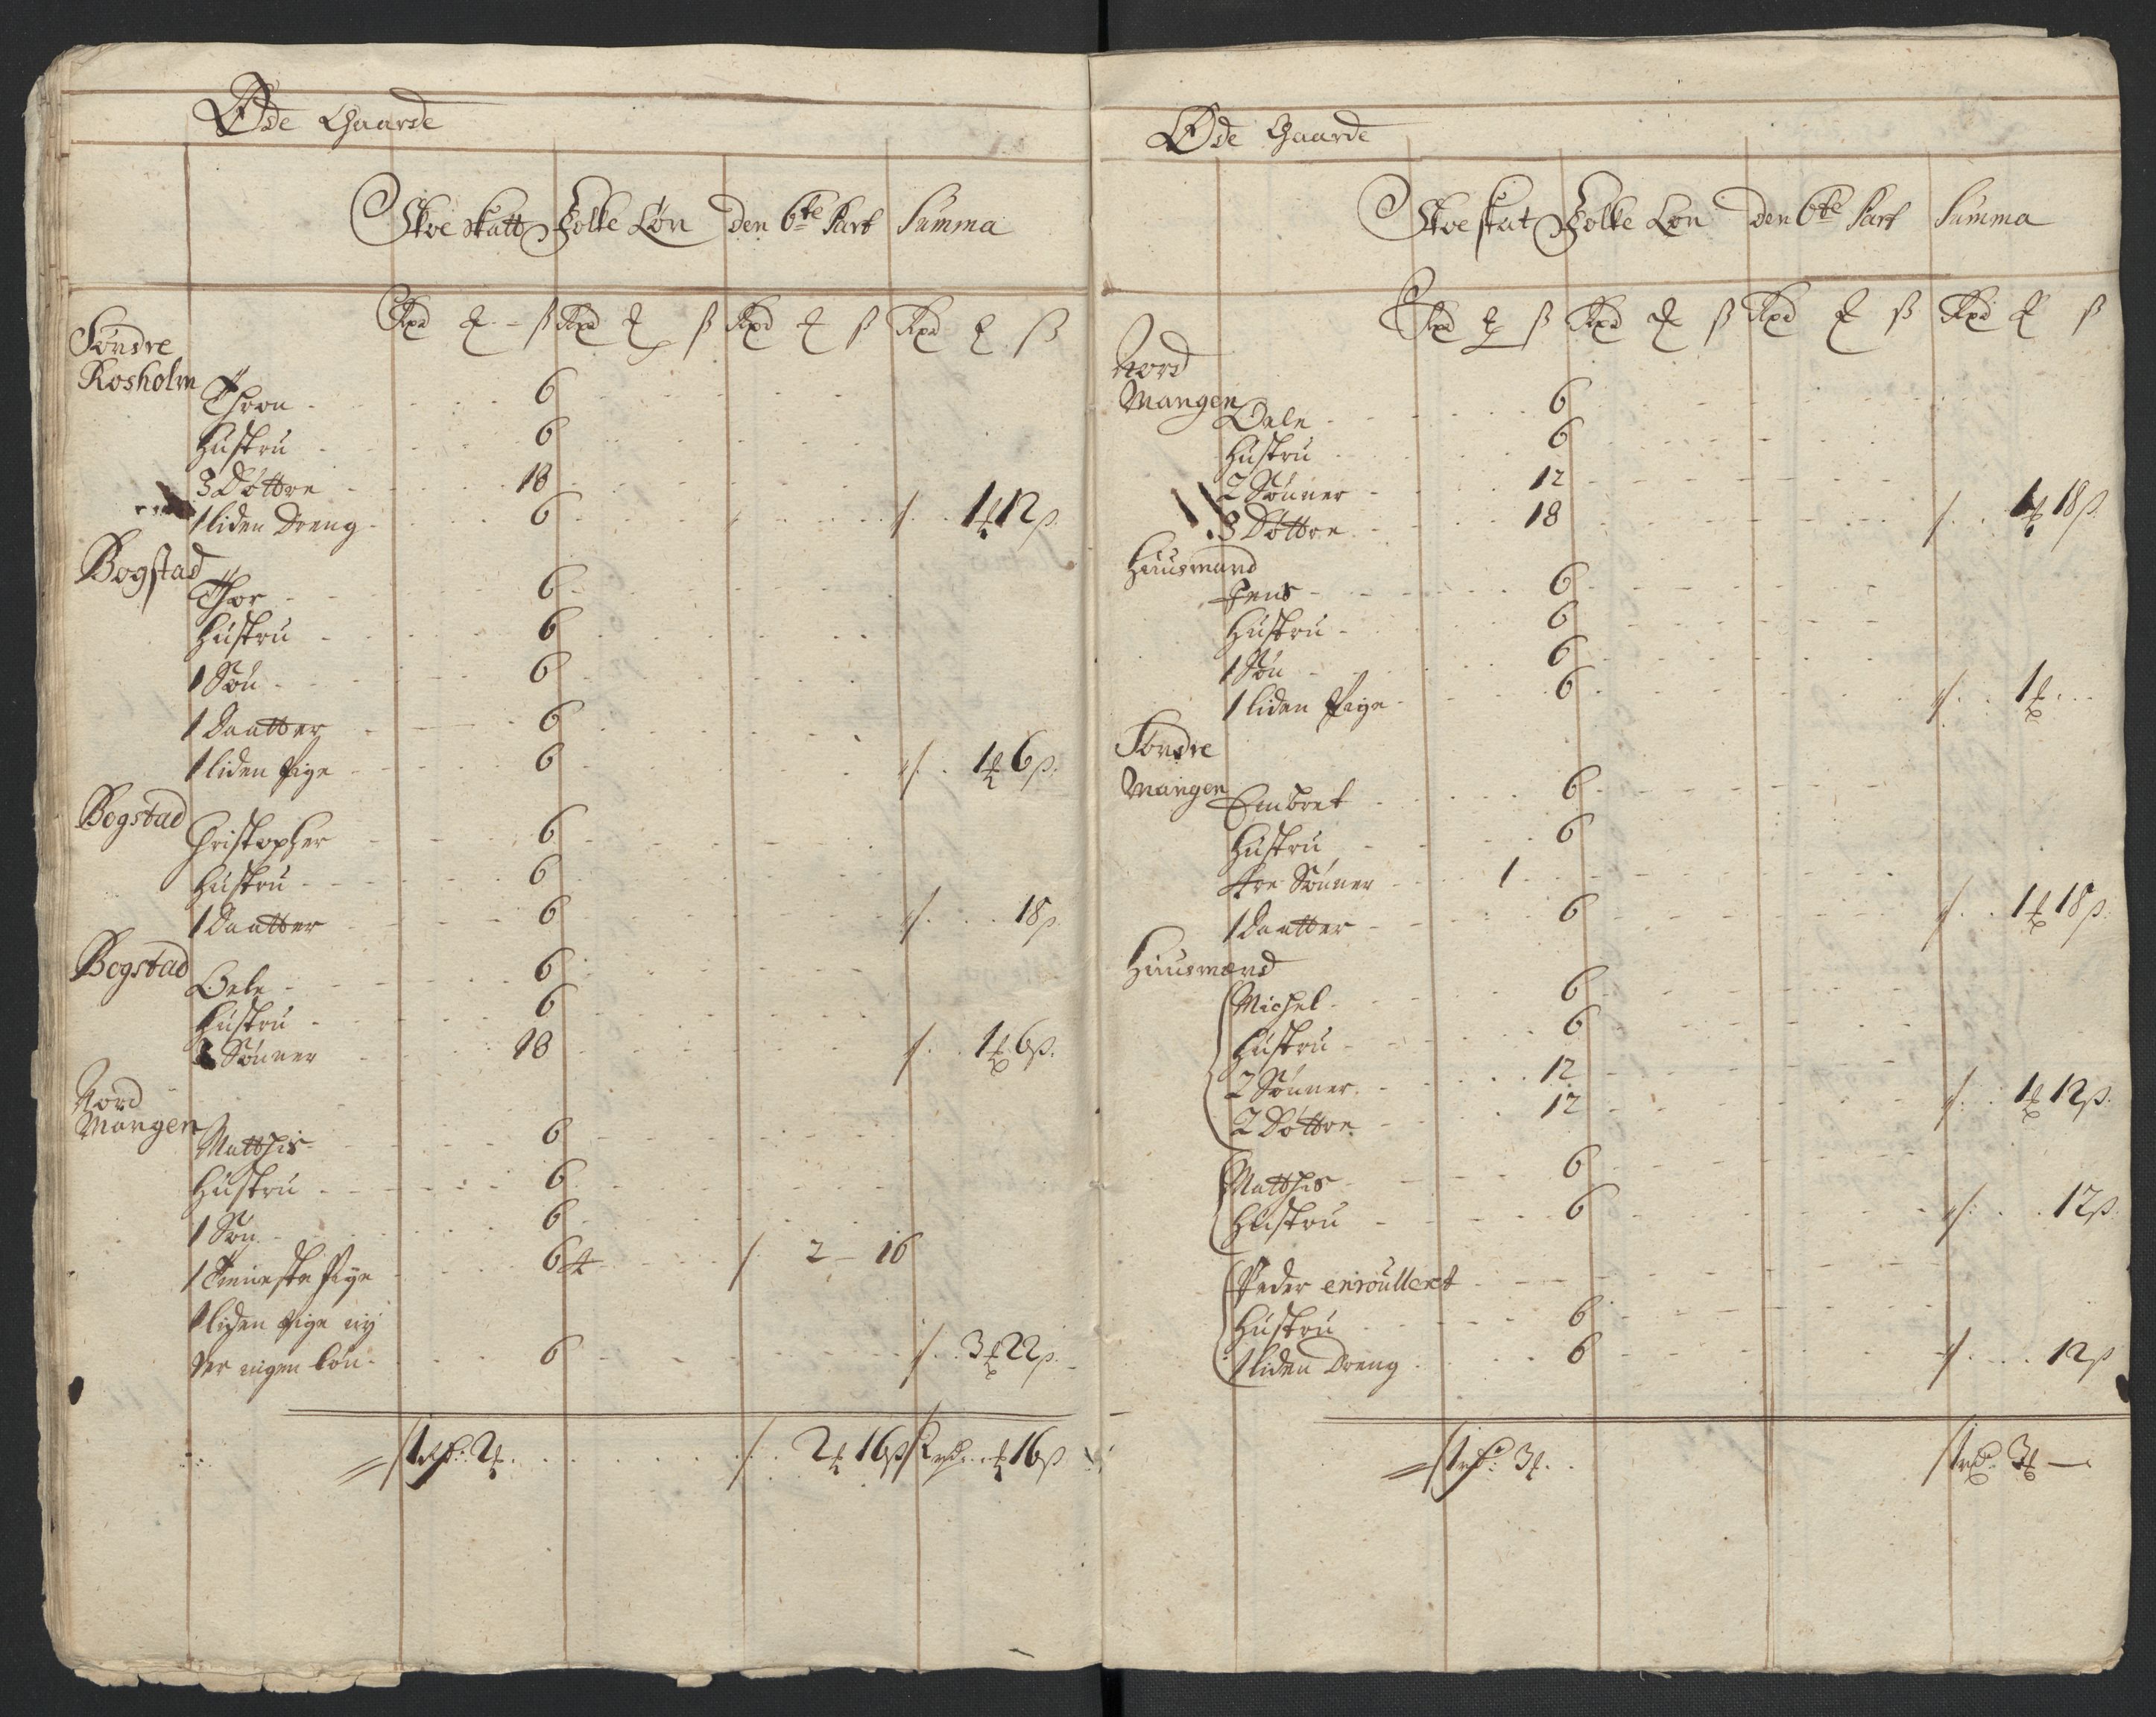 Øde Gaarde
Skoe skatt Folke Løn den 6te Part Summa
Rxd ß Rxd ß Rxd ß Rxd ß
Søndre
Rosholm
Thorn 6
Hustru 6
3 Døttre 18
1 liden Dreng 6 1 12 ß
Bogstad
Thor 6
Hustru 6
1 Søn 6
1 Daatter 6
1 liden Pige 6 1 6 ß
Bogstad
Christopher 6
Hustru 6
1 Daatter 6 18 ß
Bogstad
Oele 6
Hustru 6
3 Sønner 18 1 6 ß
Nord
Mangen
Matthis 6
Hustru 6
1 Søn 6
1 Tieneste Pige 6 4 2 – 16
1 liden Pige nÿ
der ingen Løn 6 3 22 ß
1 rd: 2 2 16 ß 2 rd 16 ß
Øde Gaarde
Skoe skat Folke Løn den 6te Part Summa
Rxd ß Rxd ß Rxd ß Rxd ß
Nord
Mangen
Oele 6
Hustru 6
2 Sønner 12
3 Døttre 18 1 18 ß
Huusmand
Jens 6
Hustru 6
1 Søn 6
1 liden Pige 6 1
Søndre
Mangen
Embret 6
Hustru 6
4re Sønner 1
1 Daatter 6 1 18 ß
Huusmænd
Michel 6
Hustru 6
2 Sønner 12
2 Døttre 12 1 12 ß
Matthis 6
Hustru 6 12 ß
Peder enroulleret
Hustru 6
1 liden Dreng 6 12 ß
1 rd: 3 1 rd: 3 –